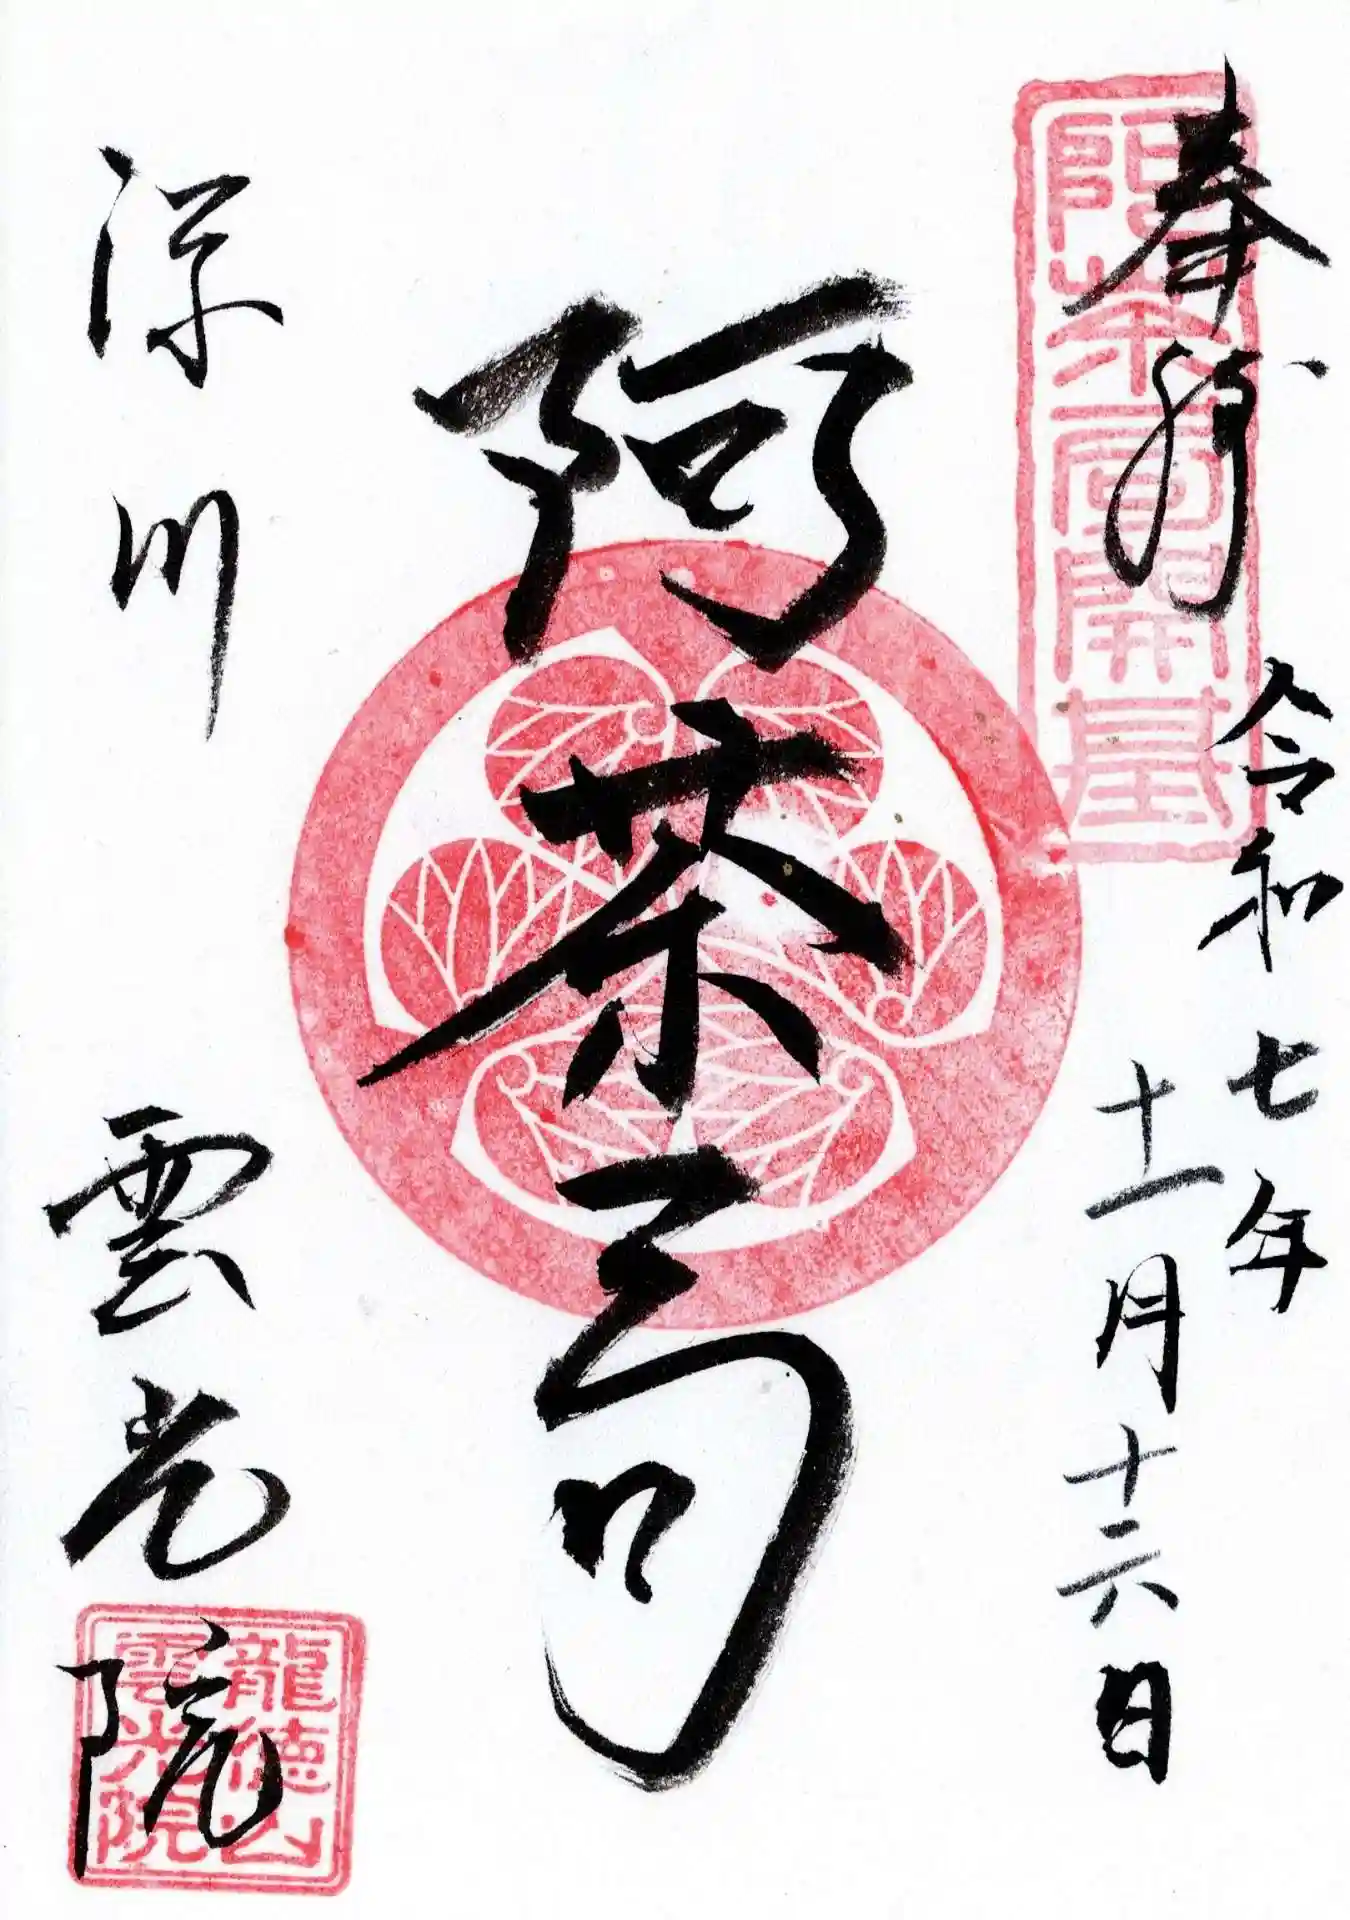 奉拝
阿茶局開基
令和七年
十一月十六日
阿茶局
深川
雲光院
龍徳山
雲光院